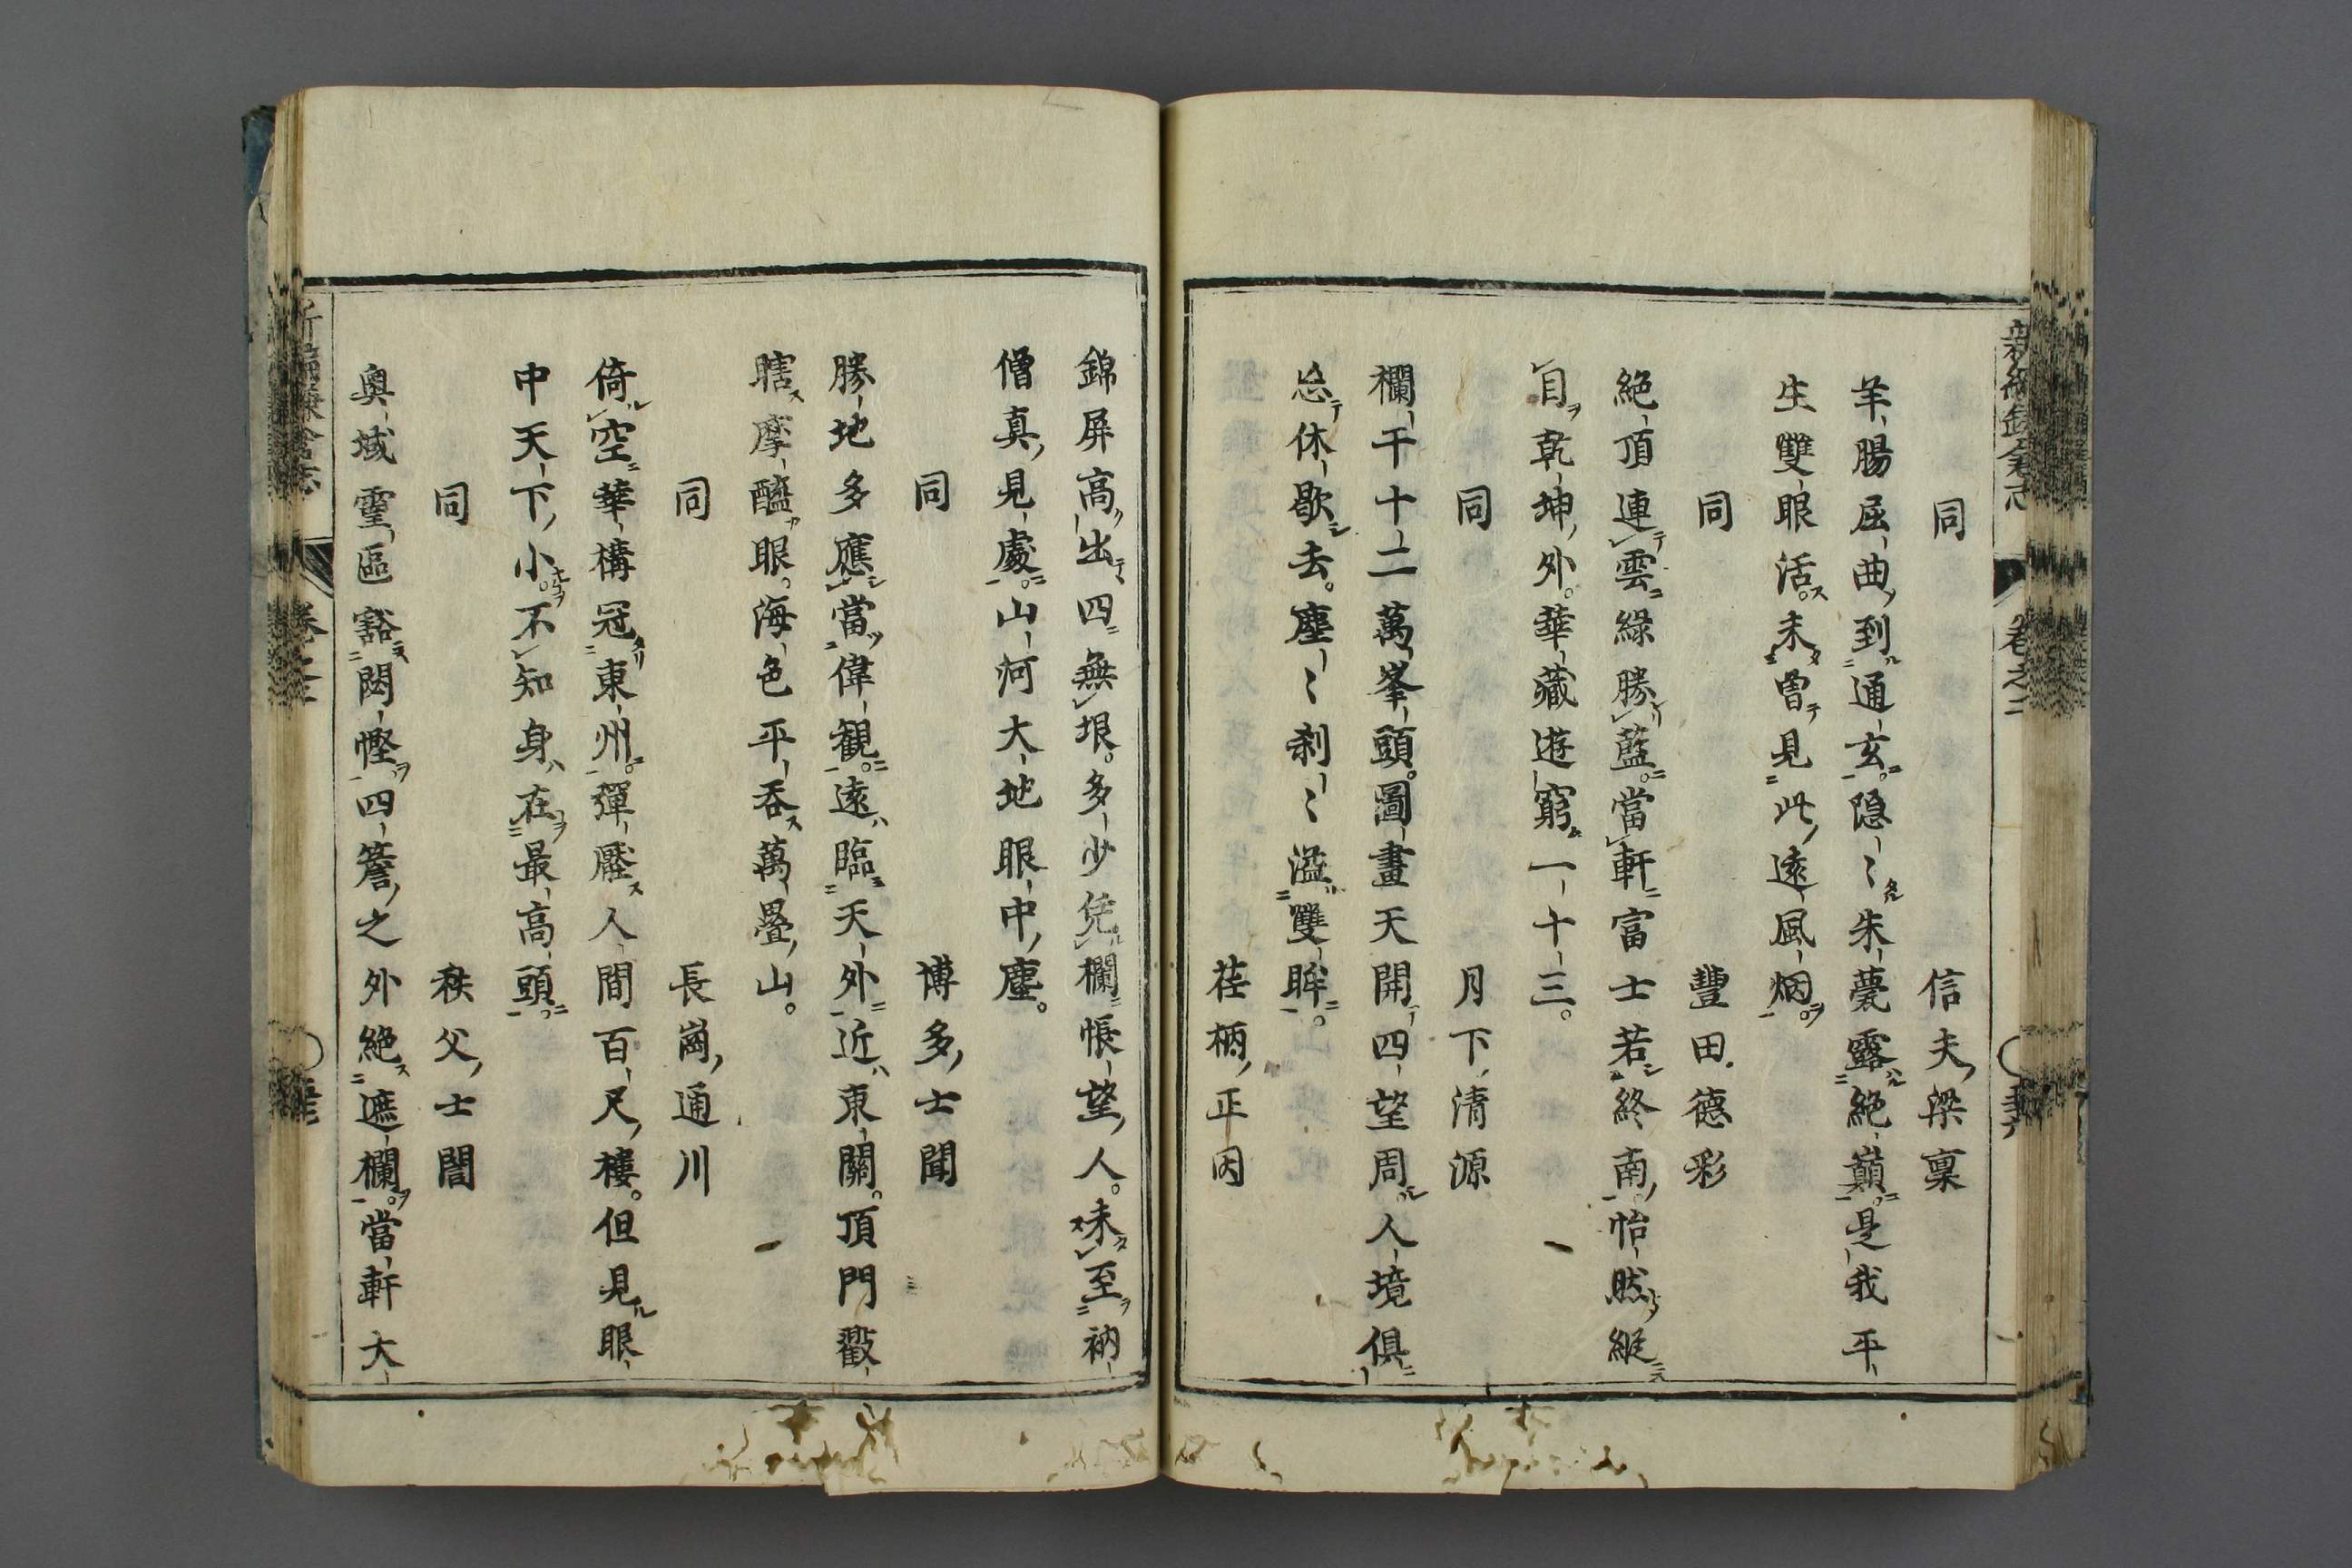 同 信夫梁稟
羊腸屈曲到通玄隐〻朱甍露絶巓是我平
生雙眼活未曽見此遠風烟
同 豐田德彩
絶頂連雲綠勝藍當軒富士若終南怡然縱
目乾坤外華藏遊窮一十三
同 月下清源
欄干十二萬峯頭圖畫天開四望周人境俱
忘休歇去塵〻刹〻溢雙眸
荏柄正因
錦屏高出四無垠多少凭欄悵望人未至衲
僧真見處山河大地眼中塵
同 博多士聞
勝地多應當偉觀遠臨天外近東關頂門戳
瞎摩醯眼海色平吞萬疊山
同 長崗通川
倚空華構冠東州彈壓人間百尺樓但見眼
中天下小不知身在最高頭
同 秩父士誾
奥域霊區豁閎慳四簷之外絶遮欄當軒大